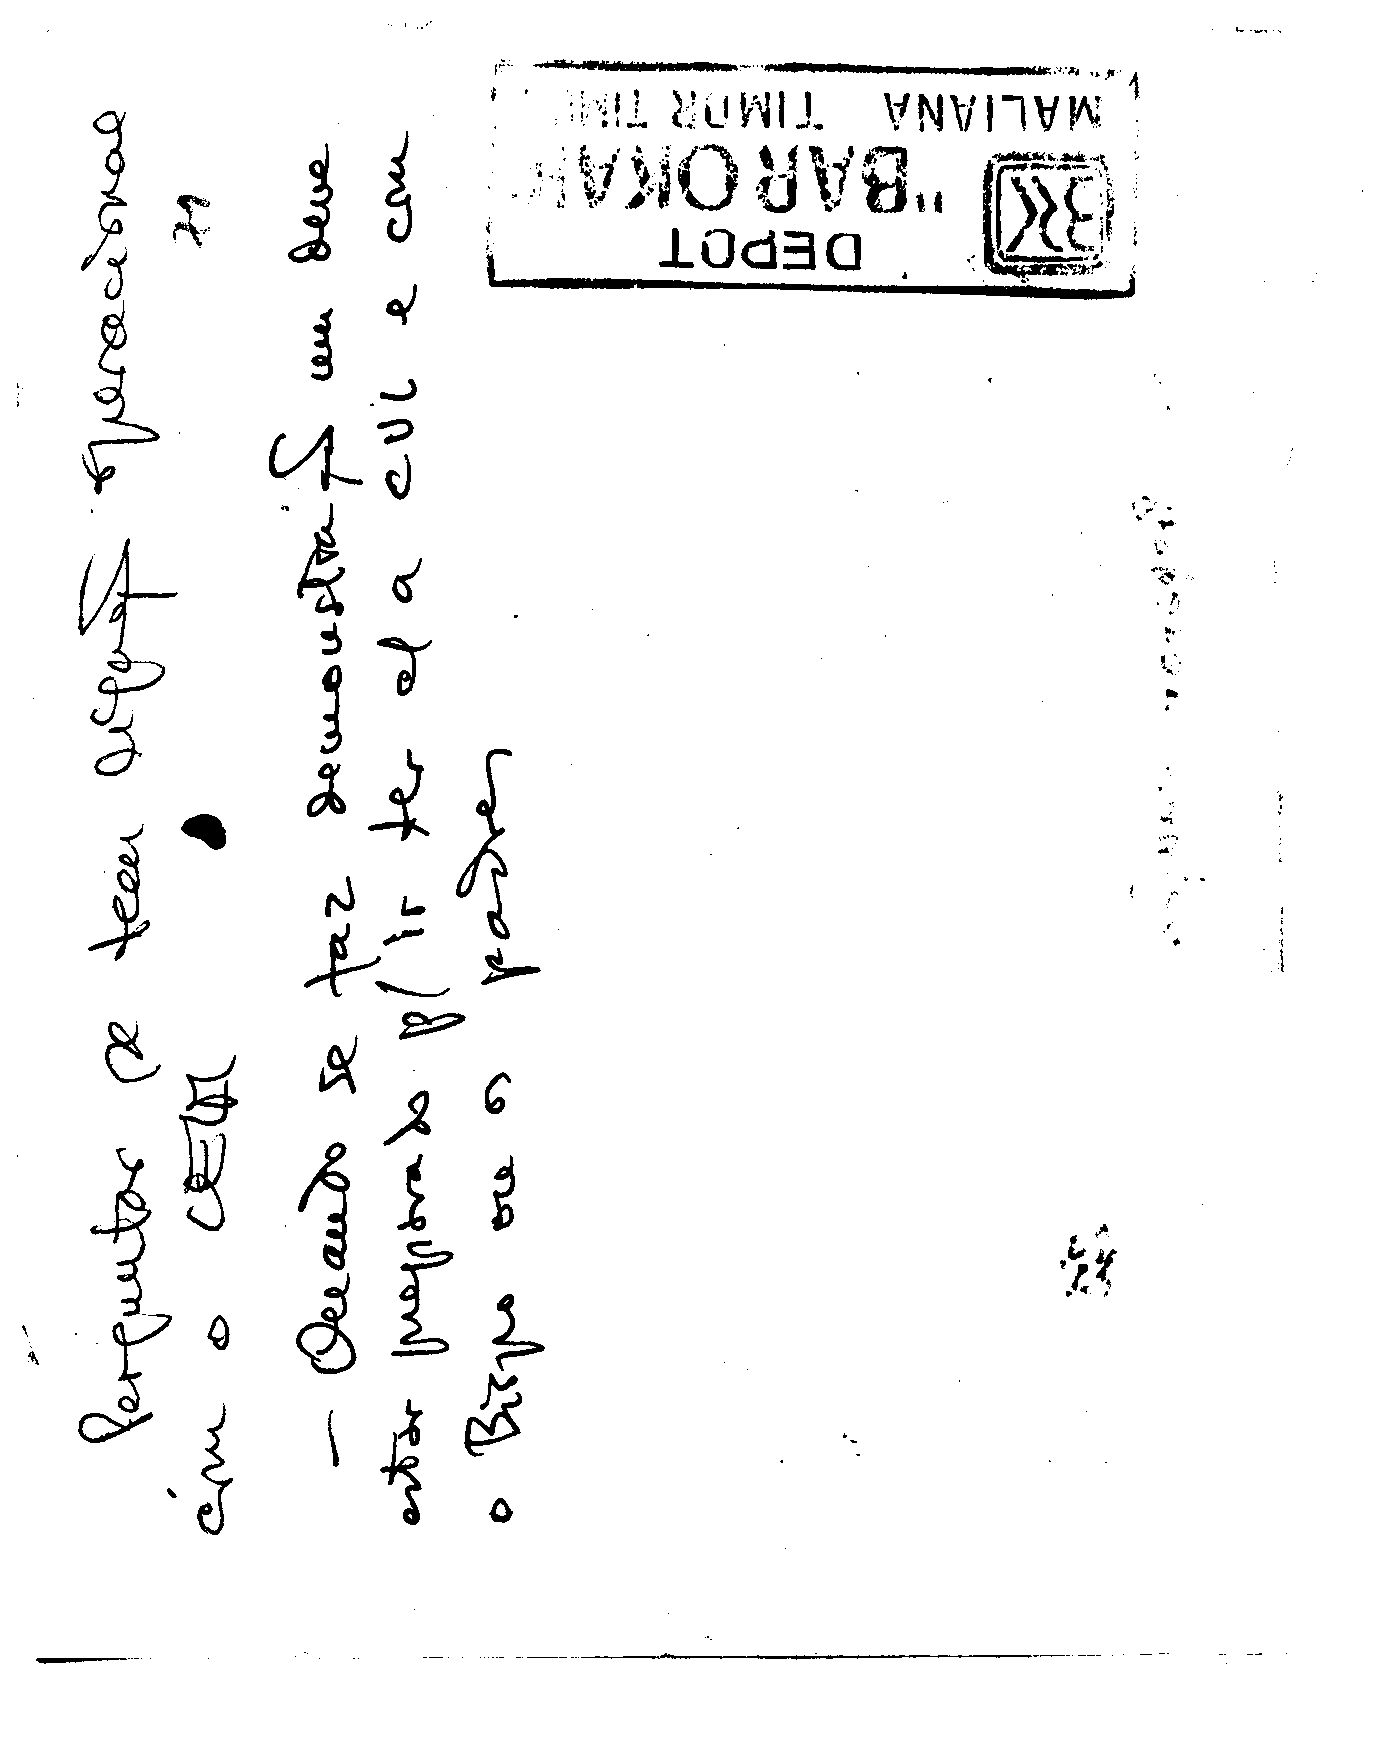 Perguntar se tem ligação operacional
com o CEM
— Quando se faz demonstração um deve
estar preparado p/ ir ter c/ a CVL e com
o Bispo ou o padre
DEPOT
"BAROKAH"
MALIANA TIMOR TIM